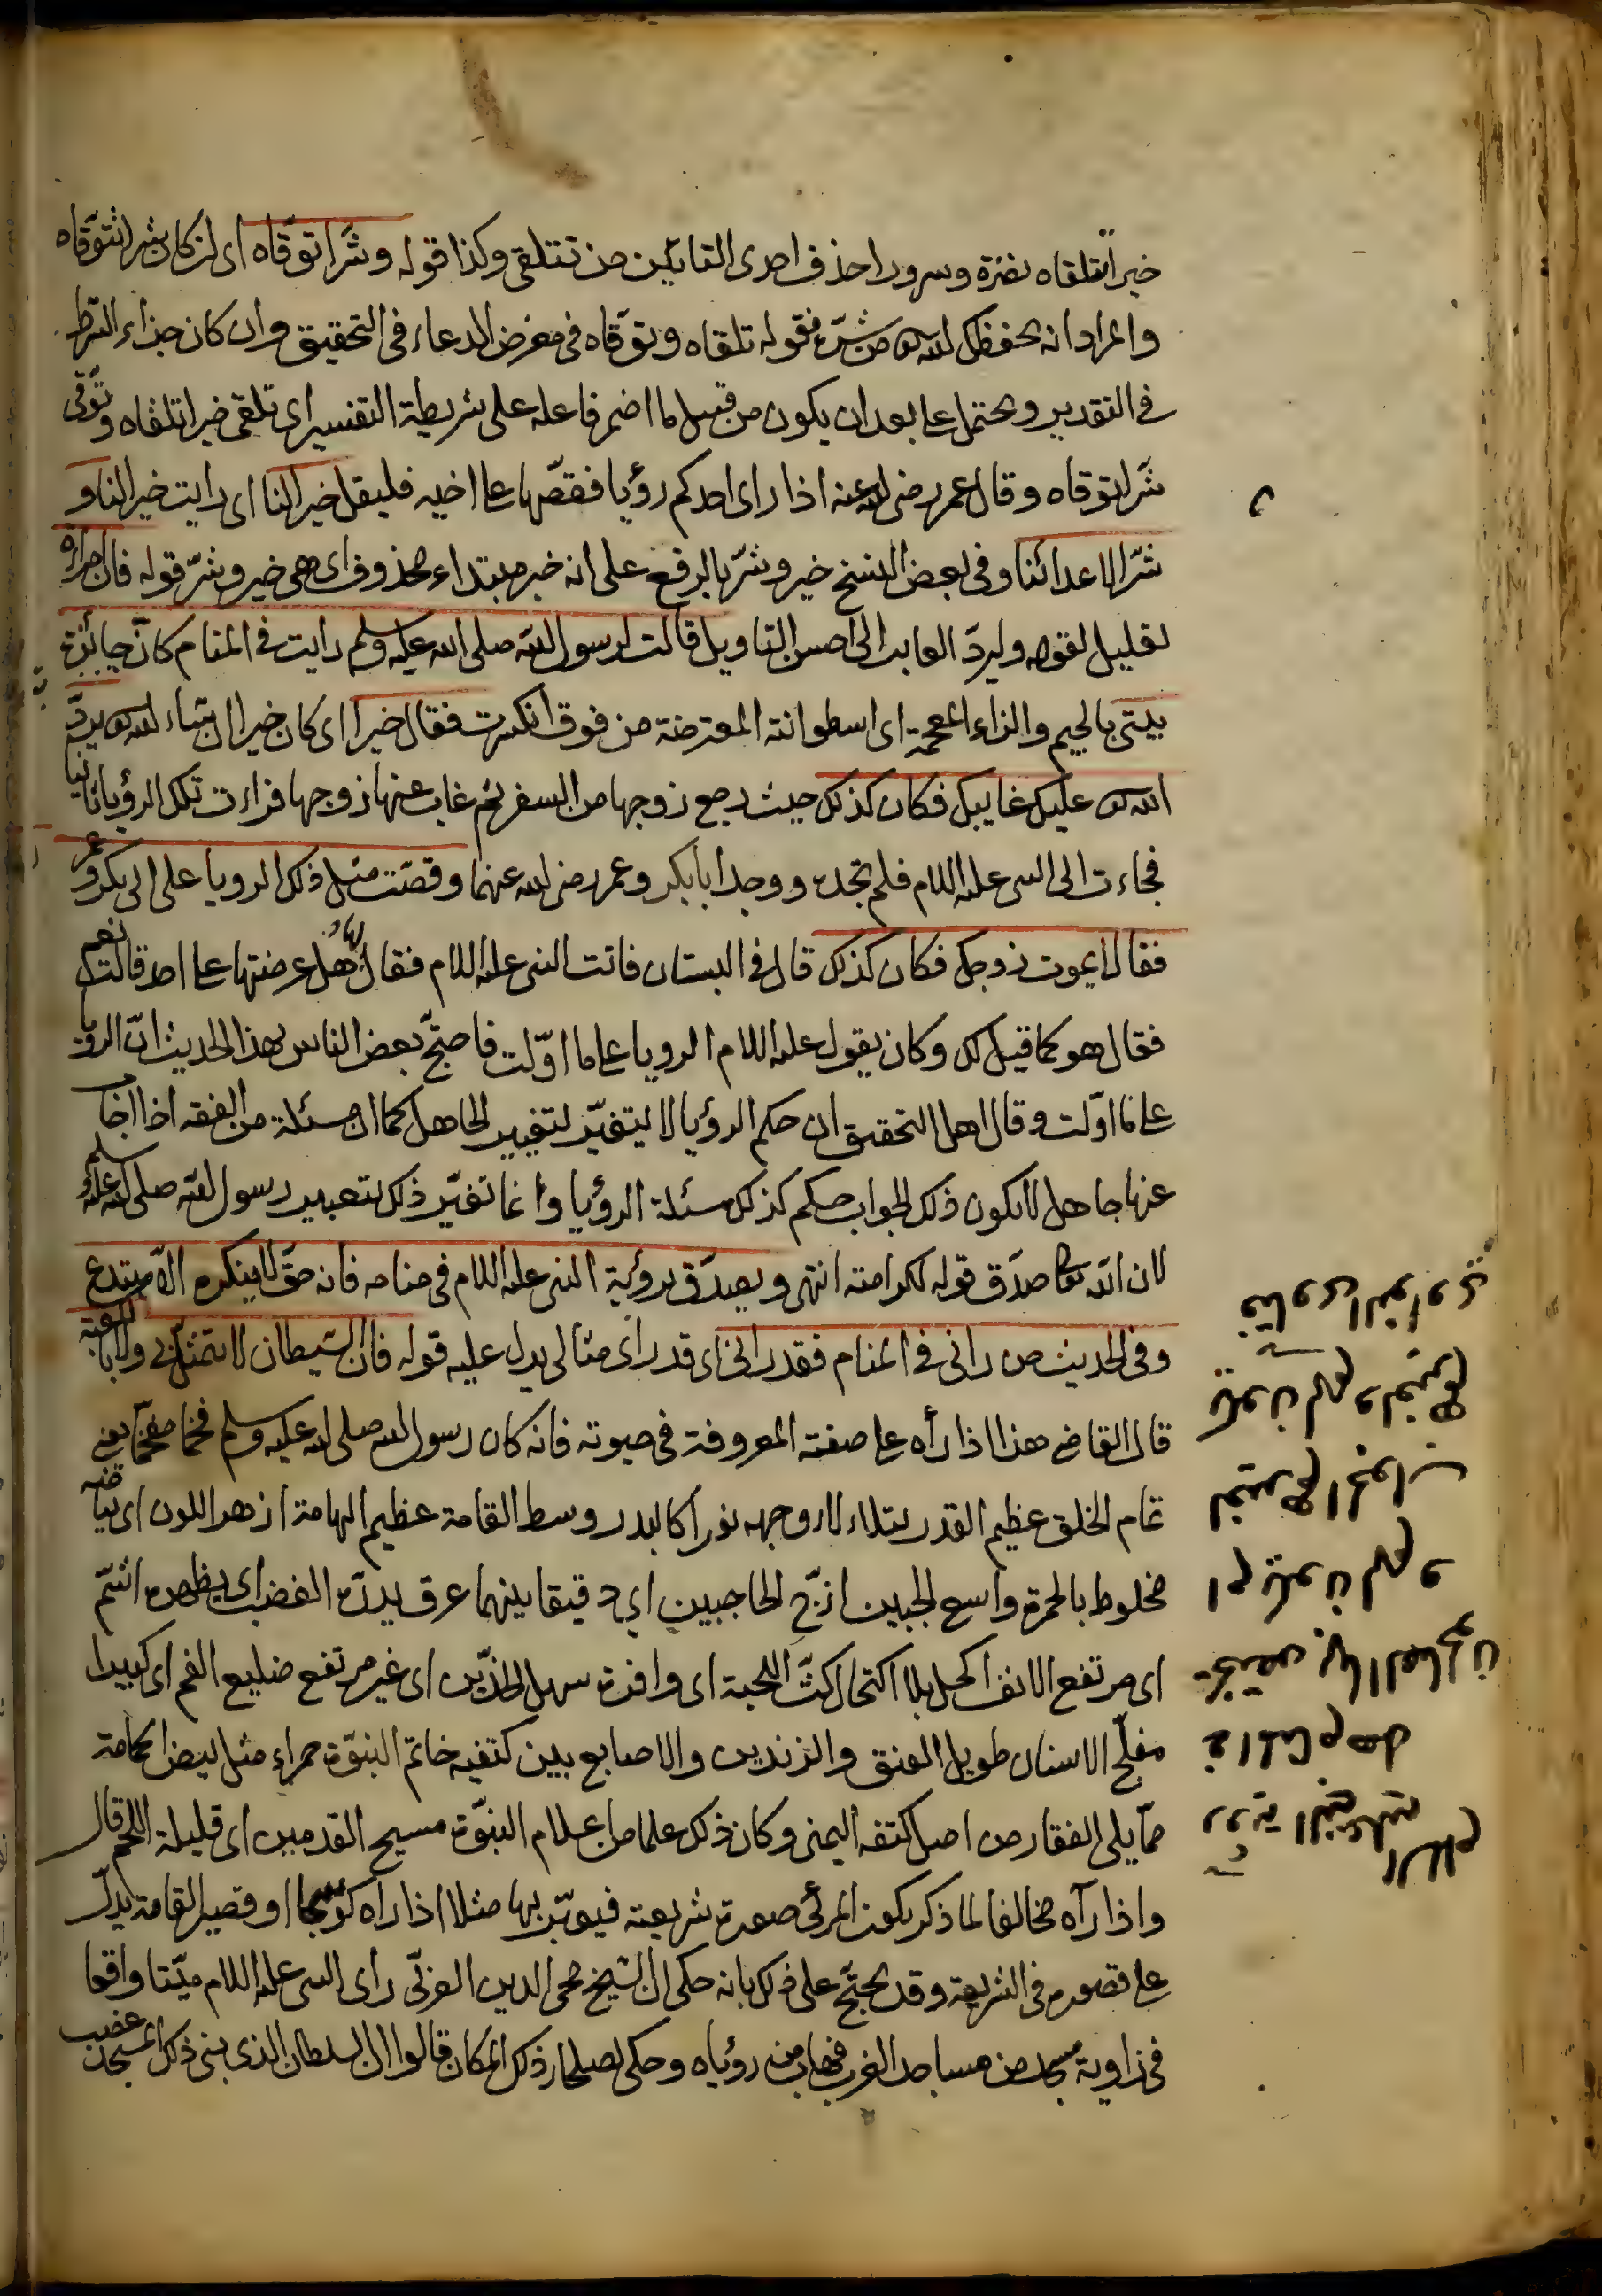 خيرا تتلقاه نضرة وسرورا حذف احدى التائين من تتلقى وكذا قوله وشرّا توقّاه اى ان كان شرا تتوقاه
والمراد انه يحفظك الله من شرّه فقوله تلقاه وتوقّاه فى معرض الدعاء فى التحقيق وان كان جزاء الشرط
فى التقدير ويحتمل على بعد ان يكون من قبيل ما اضمر فاعله على شريطة التفسير اى تلقى خيرا تلقاه وتوّقى
شرّا توقاه وقال عمر رضى الله عنه اذا راى احدكم رؤيا فقصّها على اخيه فليقل خيرا لنا اى رايت خيرا لنا و
شرّا لاعدائنا وفى بعض النسخ خير وشرّ بالرفع على انه خبر مبتداء محذوف اى هى خير وشرّ قوله فان امراة
لقليل لقوله وليردّ العابر الى احسن التاويل قالت لرسول الله صلى الله عليه وسلم رايت فى المنام كانّ جائزة
بيتى بالجيم والزاء المعجمة اى اسطوانته المعترضة من فوق انكسرت فقال خيرا اى كان خيرا ان شاء الله يردّ
الله عليك غايبك فكان كذلك حيث رجع زوجها من السفر ثم غاب عنها زوجها فراءت تلك الرؤيا ثانيا
فجاءت الى النبى عليه السلام فلم تجده ووجد ابا بكر وعمر رضى الله عنهما وقصّت مثل ذلك الرويا على ابى بكر وعمر
فقال يموت زوجك فكان كذلك قال فى البستان فاتت النبى عليه السلام فقال لها هل عرضتها على احد قالت نعم
فقال هو كما قيل لك وكان يقول عليه السلام الرويا على ما اوّلت فاحتجّ بعض الناس بهذا الحديث انّ الرؤيا
على ما اوّلت وقال اهل التحقيق ان حكم الرؤيا لا يتغيّر لتغيير الجاهل كما ان مسئلة من الفقه اذا اجاب
عنها جاهل لا يكون ذلك الجواب حكم كذلك مسئلة الرؤيا وانما تغيّر ذلك بتعبير رسول الله صلى الله عليه وسلم
لان الله تعالى صدّق قوله لكرامته انتهى ويصدّق برؤية النبى عليه السلام فى منامه فانه حقّ لا ينكره الّا مبتدع
وفى الحديث من رانى فى المنام فقد رانى اى قد راى مثالى يدل عليه قوله فان الشيطان لا يتمثّل بى ولا بالكعبة
قال القاضى هذا اذا رأه على صفته المعروفة فى حيوته فانه كان رسول الله صلى الله عليه وسلم فخما مفخّما يعنى
تمام الخلق عظيم القدر يتلاءلاء وجهه نورا كالبدر وسط القامة عظيم الهامة ازهر اللون اى بياضه
مخلوط بالحمرة واسع الجبين ازجّ الحاجبين اى دقيقا بينهما عرق يدرّه الغضب اى يظهره اشمّ
اى مرتفع الانف اكحل بلا اكتحال كثّ اللحية اى وافرة سهل الخدّين اى غير مرتفع ضليع الفم اى كبيرا
مفلّج الاسنان طويل العنق والزندين والاصابع بين كتفيه خاتم النبوّة حمراء مثل بيض الحمامة
ممّا يلى الفقار من اصل كتفه اليمنى وكان ذلك علما من اعلام النبوّة مسيح القدمين اى قليلة اللحم قال
واذا رآه مخالفا لما ذكر يكون المرئى صورة شريعته فيعبّر بها مثلا اذا راه كوسجا او قصير القامة يدلّ
على قصوره فى الشريعة وقد يحتجّ على ذلك بانه حكى ان الشيخ محى الدين العربّى راى النبى عليه السلام ميّتا واقعا
فى زاوية مسجد من مساجد الغرب فهاب من رؤياه وحكى لصلحاء ذلك المكان قالوا ان السلطان الذى بنى ذلك المسجد غضب
رؤية النبى عليه السلام
فى المنام هل
يختص بها الصالحون
ام تكون لهم و
لغيرهم الجواب
تكون لهم ولغيرهم
فتاوى النواوى